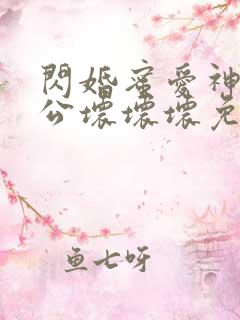 閃婚蜜愛神
公壞壞壞免
鱼七呀